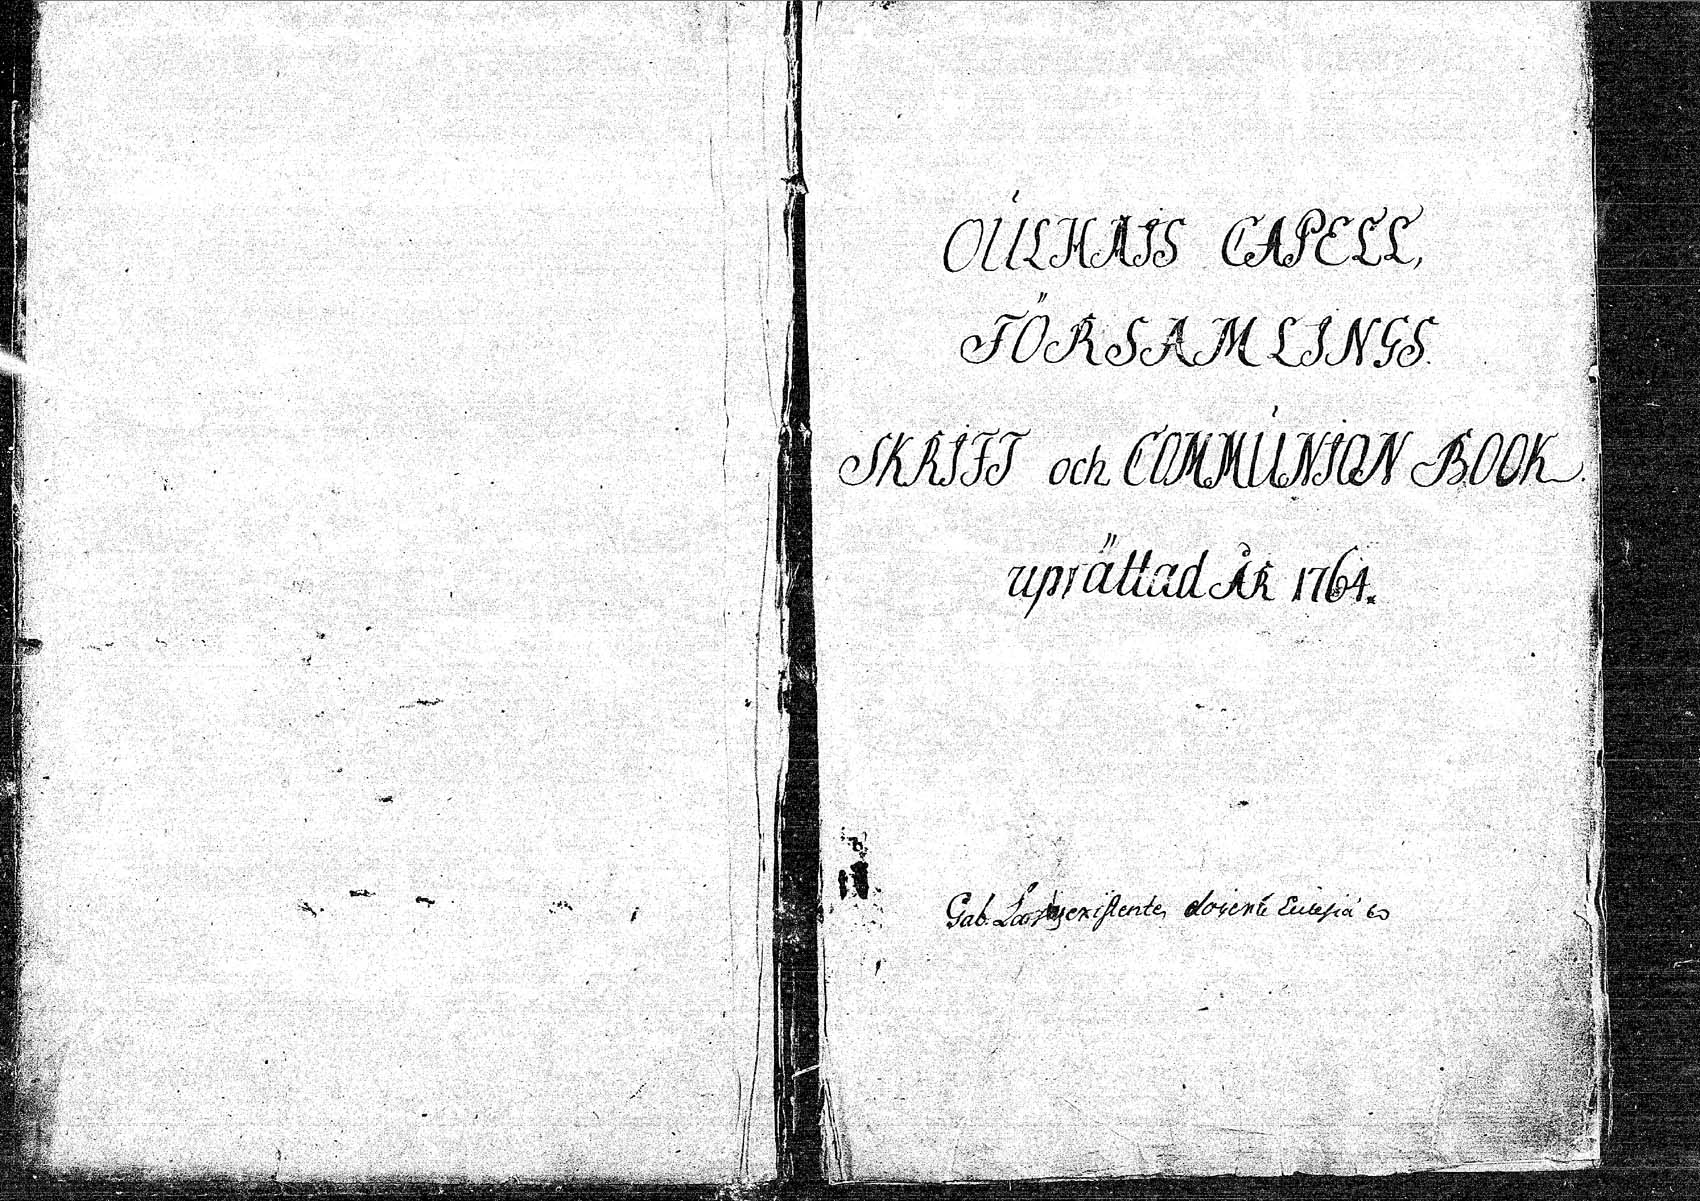 OULHAIS CAPELL,
FÖRSAMLINGS.
SKRIFT och COMMUNION BOOK.
uprättad ÅR 1764.
Gab. existente docente